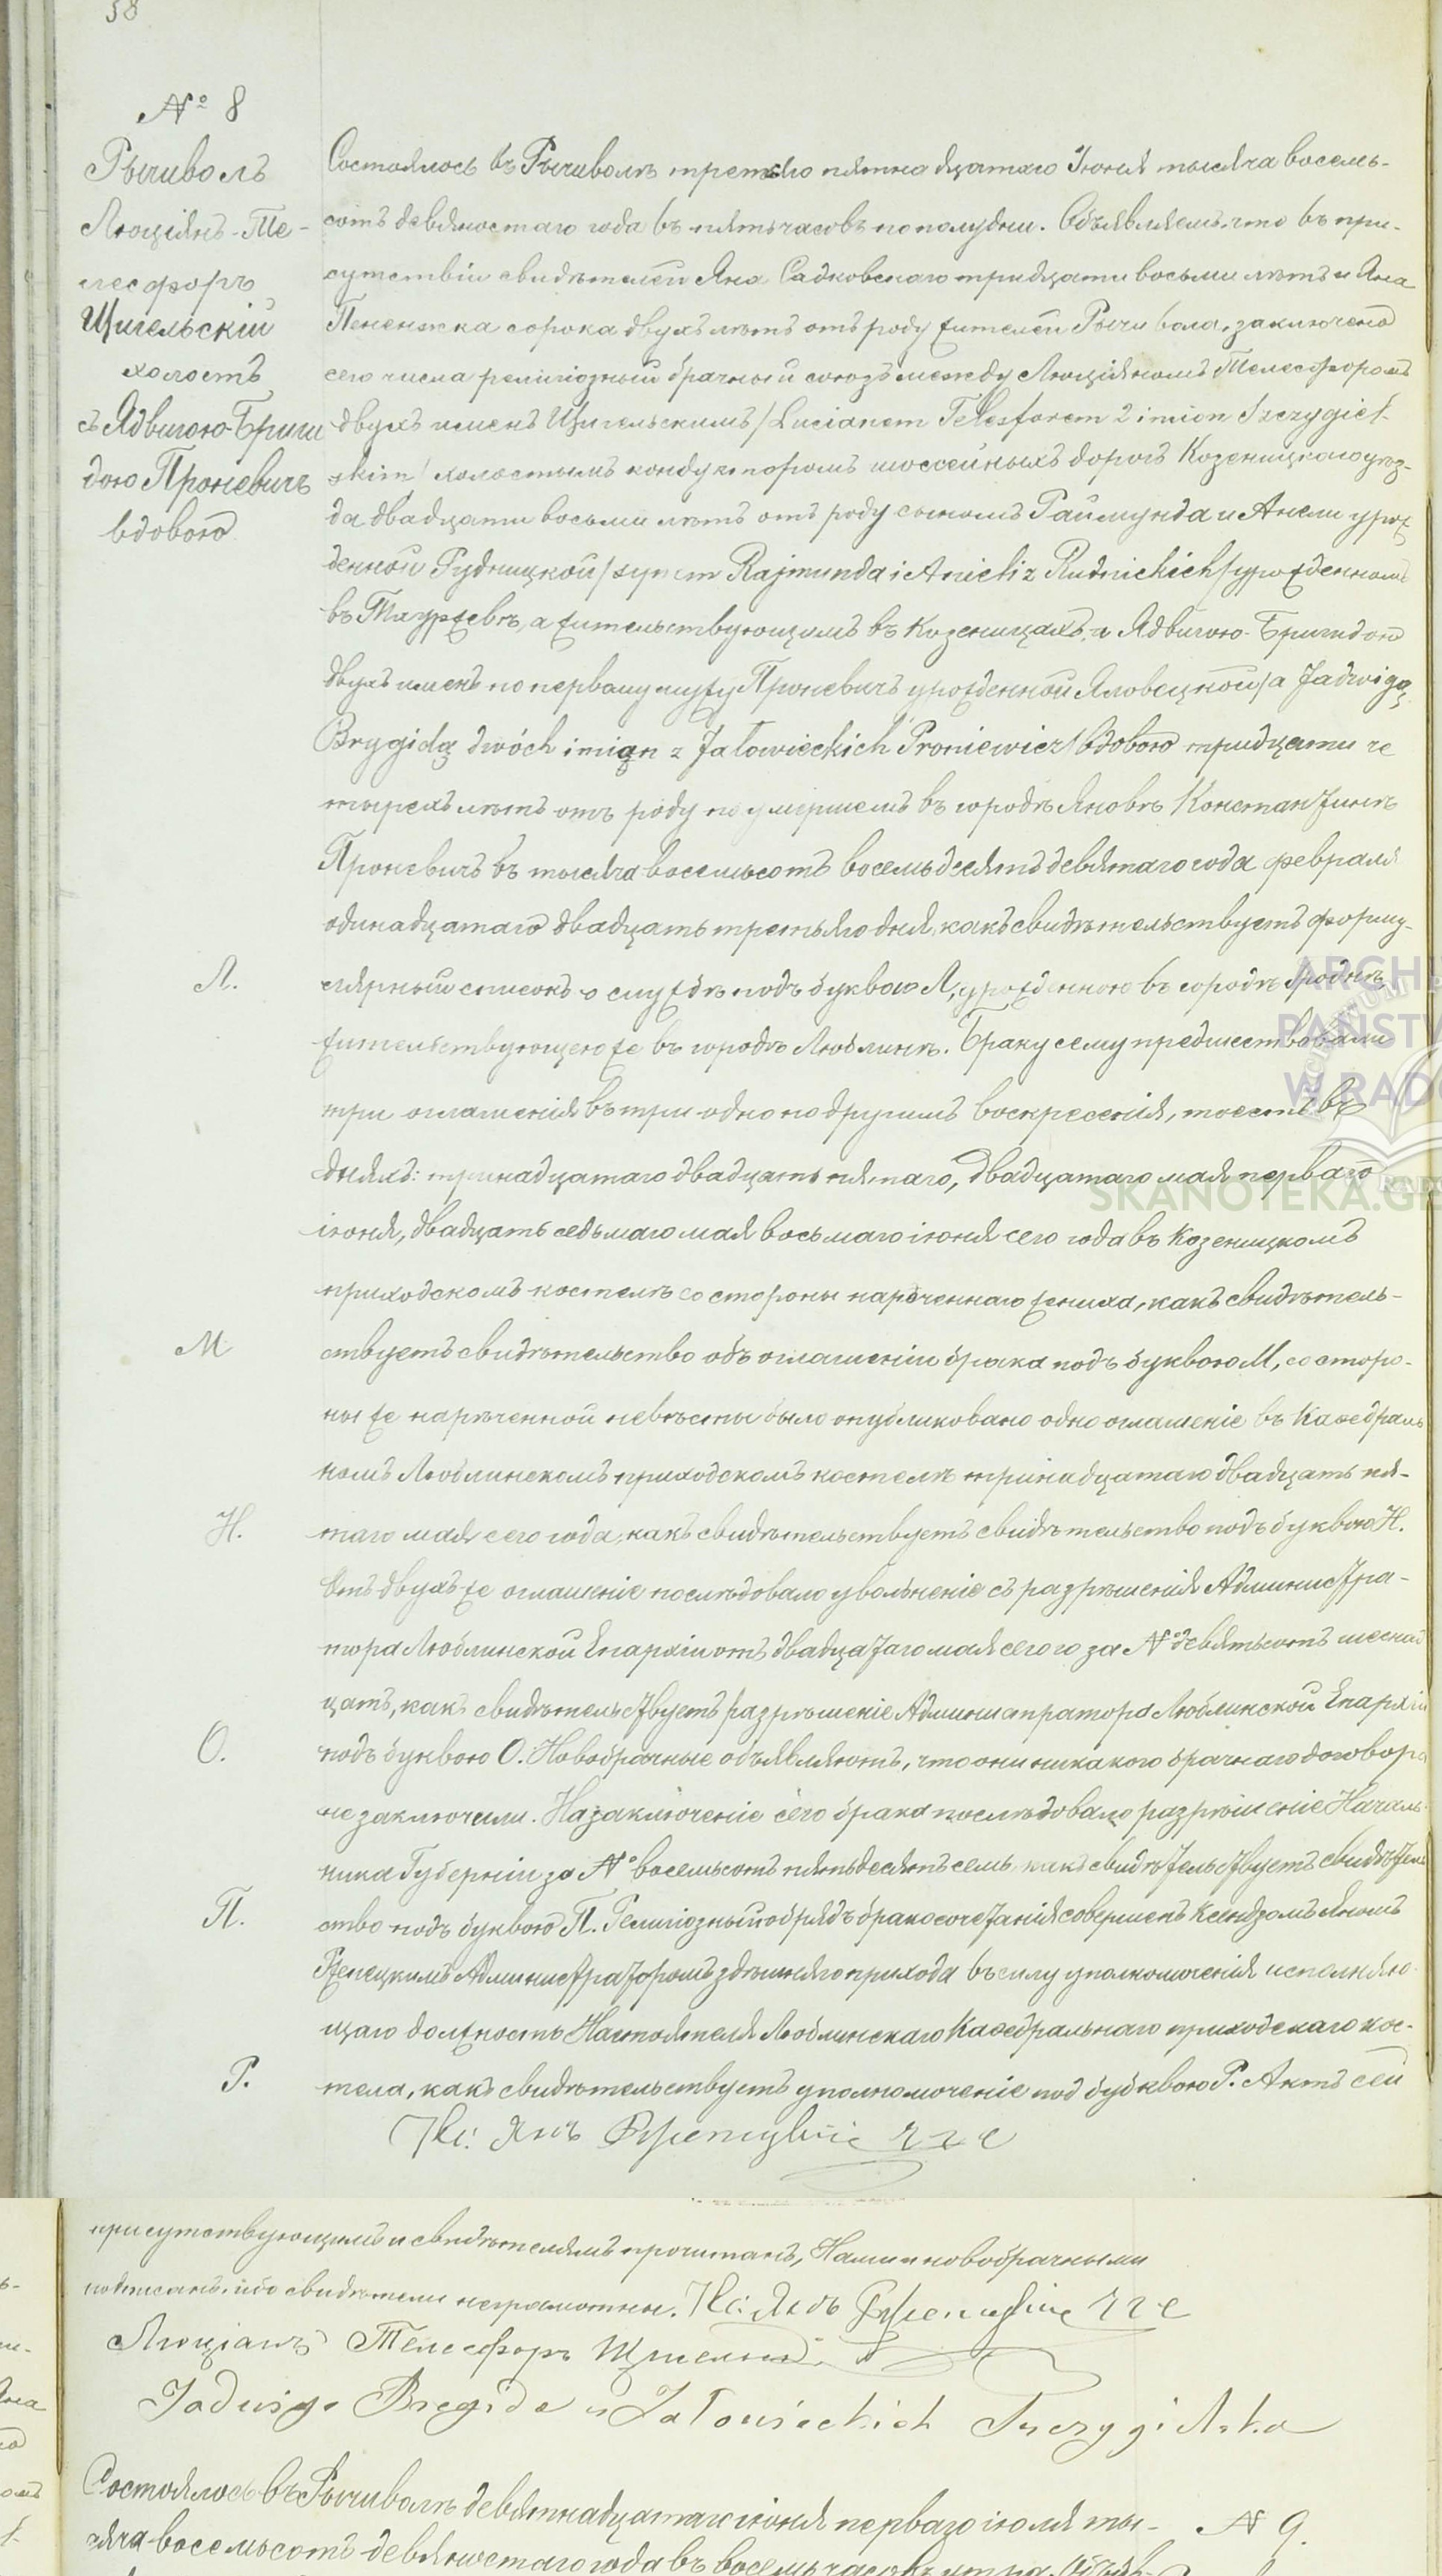 58
№ 8
Рычиволъ
Люціянъ-Те-
лесфоръ
Щигельскій
холостъ
съ Ядвигою-Бриги
дою Проневичъ
вдовою
Состоялось въ Рычиволѣ третьяго пятнадцатаго Іюня тысяча восемь-
сотъ девяностаго года въ пять часовъ пополудни. Объявляемъ, что въ при-
сутствіи свидѣтелей Яна Садковскаго тридцати восьми лѣтъ и Яна
Пененжка сорока двухъ лѣтъ отъ роду жителей Рычивола, заключено
сего числа религіозный брачный союзъ между Люціяномъ Телесфоромъ
двухъ именъ Щигельскимъ /Lucianem Telesforem 2 imion Szczygiel-
skim/ холостымъ кондукторомъ шоссейныхъ дорогъ Козеницкаго уѣз-
да двадцати восьми лѣтъ отъ роду сыномъ Раймунда и Анели урож
денной Рудницкой /synem Rajmunda i Anieli z Rudnickich/ урожденномъ
въ, а жительствующимъ въ Козеницахъ, и Ядвигою-Бригидою
двухъ именъ по первому мужу Проневичъ урожденной Яловецкой /a Jadwigą
Brygidą dwóch imion z Jałowieckich Proniewicz/ вдовою тридцати че
тырехъ лѣтъ отъ роду по умершемъ въ городѣ Яновѣ Константинѣ
Проневичъ въ тысяча восемьсотъ восемьдесятъ девятаго года февраля
одинадцатаго двадцать третьяго дня, какъ свидѣтельствуетъ форму-
Л.
лярный списокъ о службѣ подъ буквою Л, урожденною въ городѣ Гроднѣ
жительствующею же въ городѣ Люблинѣ. Браку сему предшествовали
три оглашенія въ три одно по другимъ воскресенія, тоесть въ
дняхъ: тринадцатаго двадцать пятаго, двадцатаго мая перваго
іюня, двадцать седьмаго мая восьмаго іюня сего года въ Козеницкомъ
приходскомъ костелѣ со стороны нарѣченнаго жениха, какъ свидѣтель-
М
ствуетъ свидѣтельство объ оглашеніи брака подъ буквою М, со сторо-
ны же нарѣченной невѣсты было опубликовано одно оглашеніе въ Каѳедраль
номъ Люблинскомъ приходскомъ костелѣ тринадцатаго двадцать пя-
Н.
таго мая сего года, какъ свидѣтельствуетъ свидѣтельство подъ буквою Н.
Отъ двухъ же оглашеніе послѣдовало увольненіе съ разрѣшенія Администра-
тора Люблинской Епархіи отъ двадцатаго мая сего го за № девятьсотъ шеснад
цать, какъ свидѣтельствуетъ разрѣшеніе Администратора Люблинской Епархіи
О.
подъ буквою О. Новобрачные объявляютъ, что они никакого брачнаго договора
не заключили. На заключеніе сего брака послѣдовало разрѣшеніе Началь-
ника Губерніи за № восемьсотъ пятьдесятъ семь, какъ свидѣтельствуетъ свидѣтель
П.
ство подъ буквою П. Религіозный обрядъ бракосочетанія совершенъ Ксендзомъ Яномъ
Рженецкимъ Администраторомъ здѣшняго прихода въ силу уполномоченія исполняю-
щаго должность Настоятеля Люблинскаго Каѳедральнаго приходскаго кос-
Р.
тела, какъ свидѣтельствуетъ уполномоченіе под буквою Р. Актъ сей
Кс: Янъ
присутствующимъ и свидѣтелямъ прочитанъ, Нами и новобрачными
подписанъ, ибо свидѣтели неграмотны. Кс: Янъ
Люціанъ Телесфоръ
Jadwiga Brygida z Jałowieckich Szczygielska
Состоялось въ Рычиволѣ девятнадцатаго іюня перваго іюля ты-
№ 9.
сяча восемьсотъ девяностаго года въ восемь часовъ утра. Объяв-
ARCHI
PAŃSTW
W RADO
SKANOTEKA.GE